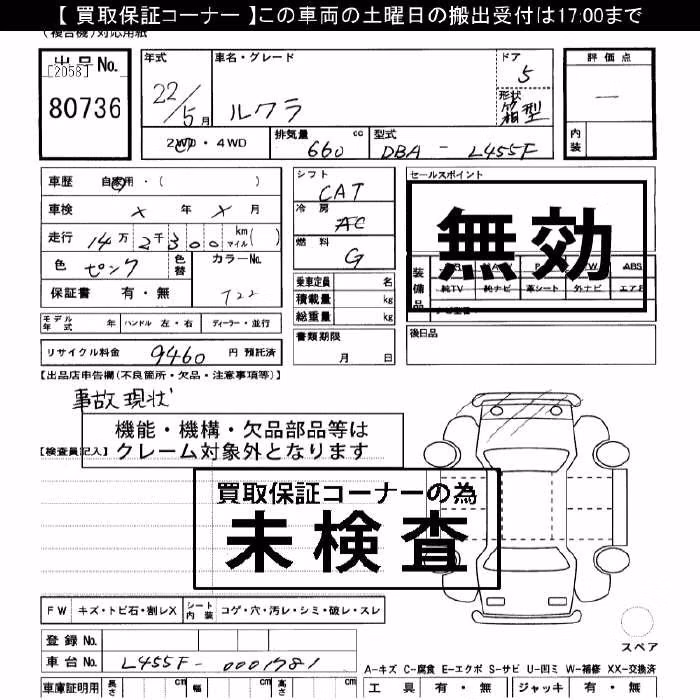 【 買取保証コーナー 】この車両の土曜日の搬出受付は17:00まで
(複合機)対応用紙
出品No. 年式 車名・グレード ドア 評価点
[2058] 5
80736 22/5月 ルクラ 形状 箱型 —
2WD・4WD 排気量 660 cc 型式 DBA - L455F 内装
車歴 自家用・( ) シフト CAT セールスポイント
車検 X 年 X 月 冷房 AC 無効
走行 14万2千300 km マイル ( ) 燃料 G
色 ピンク 色替 カラーNo. 乗車定員 名 装備品 ABS
保証書 有・無 T22 積載量 kg 純TV 純ナビ 革シート 外ナビ エアB
総重量 kg
モデル年式 年 ハンドル 左・右 ディーラー・並行 書類期限 月 日 後日品
リサイクル料金 9460 円 預託済
【出品店申告欄(不良箇所・欠品・注意事項等)】
事故現状
機能・機構・欠品部品等は
【検査員記入】 クレーム対象外となります
買取保証コーナーの為
未検査
FW キズ・トビ石・割レX シート内装 コゲ・穴・汚レ・シミ・破レ・スレ
登録No. スペア
車台No. L455F-0001781
A-キズ C-腐食 E-エクボ S-サビ U-凹ミ W-補修 XX-交換済
車庫証明用 長さ cm 幅 cm 高さ cm 工具 有・無 ジャッキ 有・無